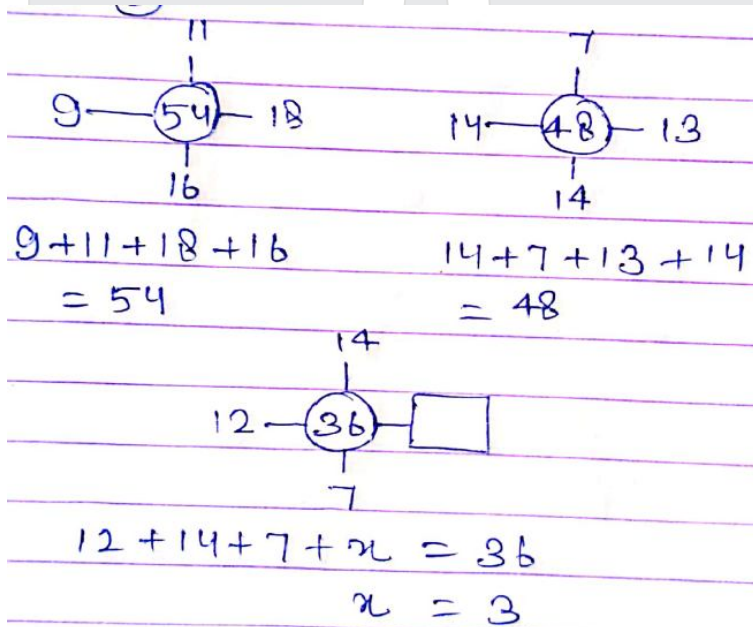 11
7
9 54 18
14 48 13
16
14
9+11+18+16
= 54
14+7+13+14
= 48
14
12 36
7
12+14+7+x = 36
x = 3